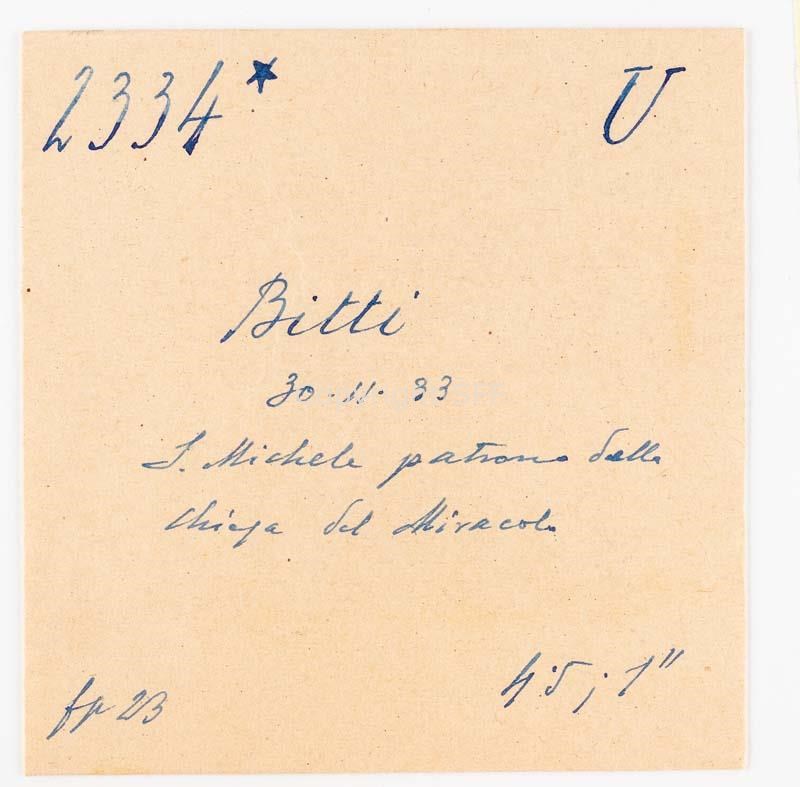 2334* U
Bitti
30.11.33
S. Michele patrono della
Chiesa del Miracolo
fp 23 4.5 ; 1"